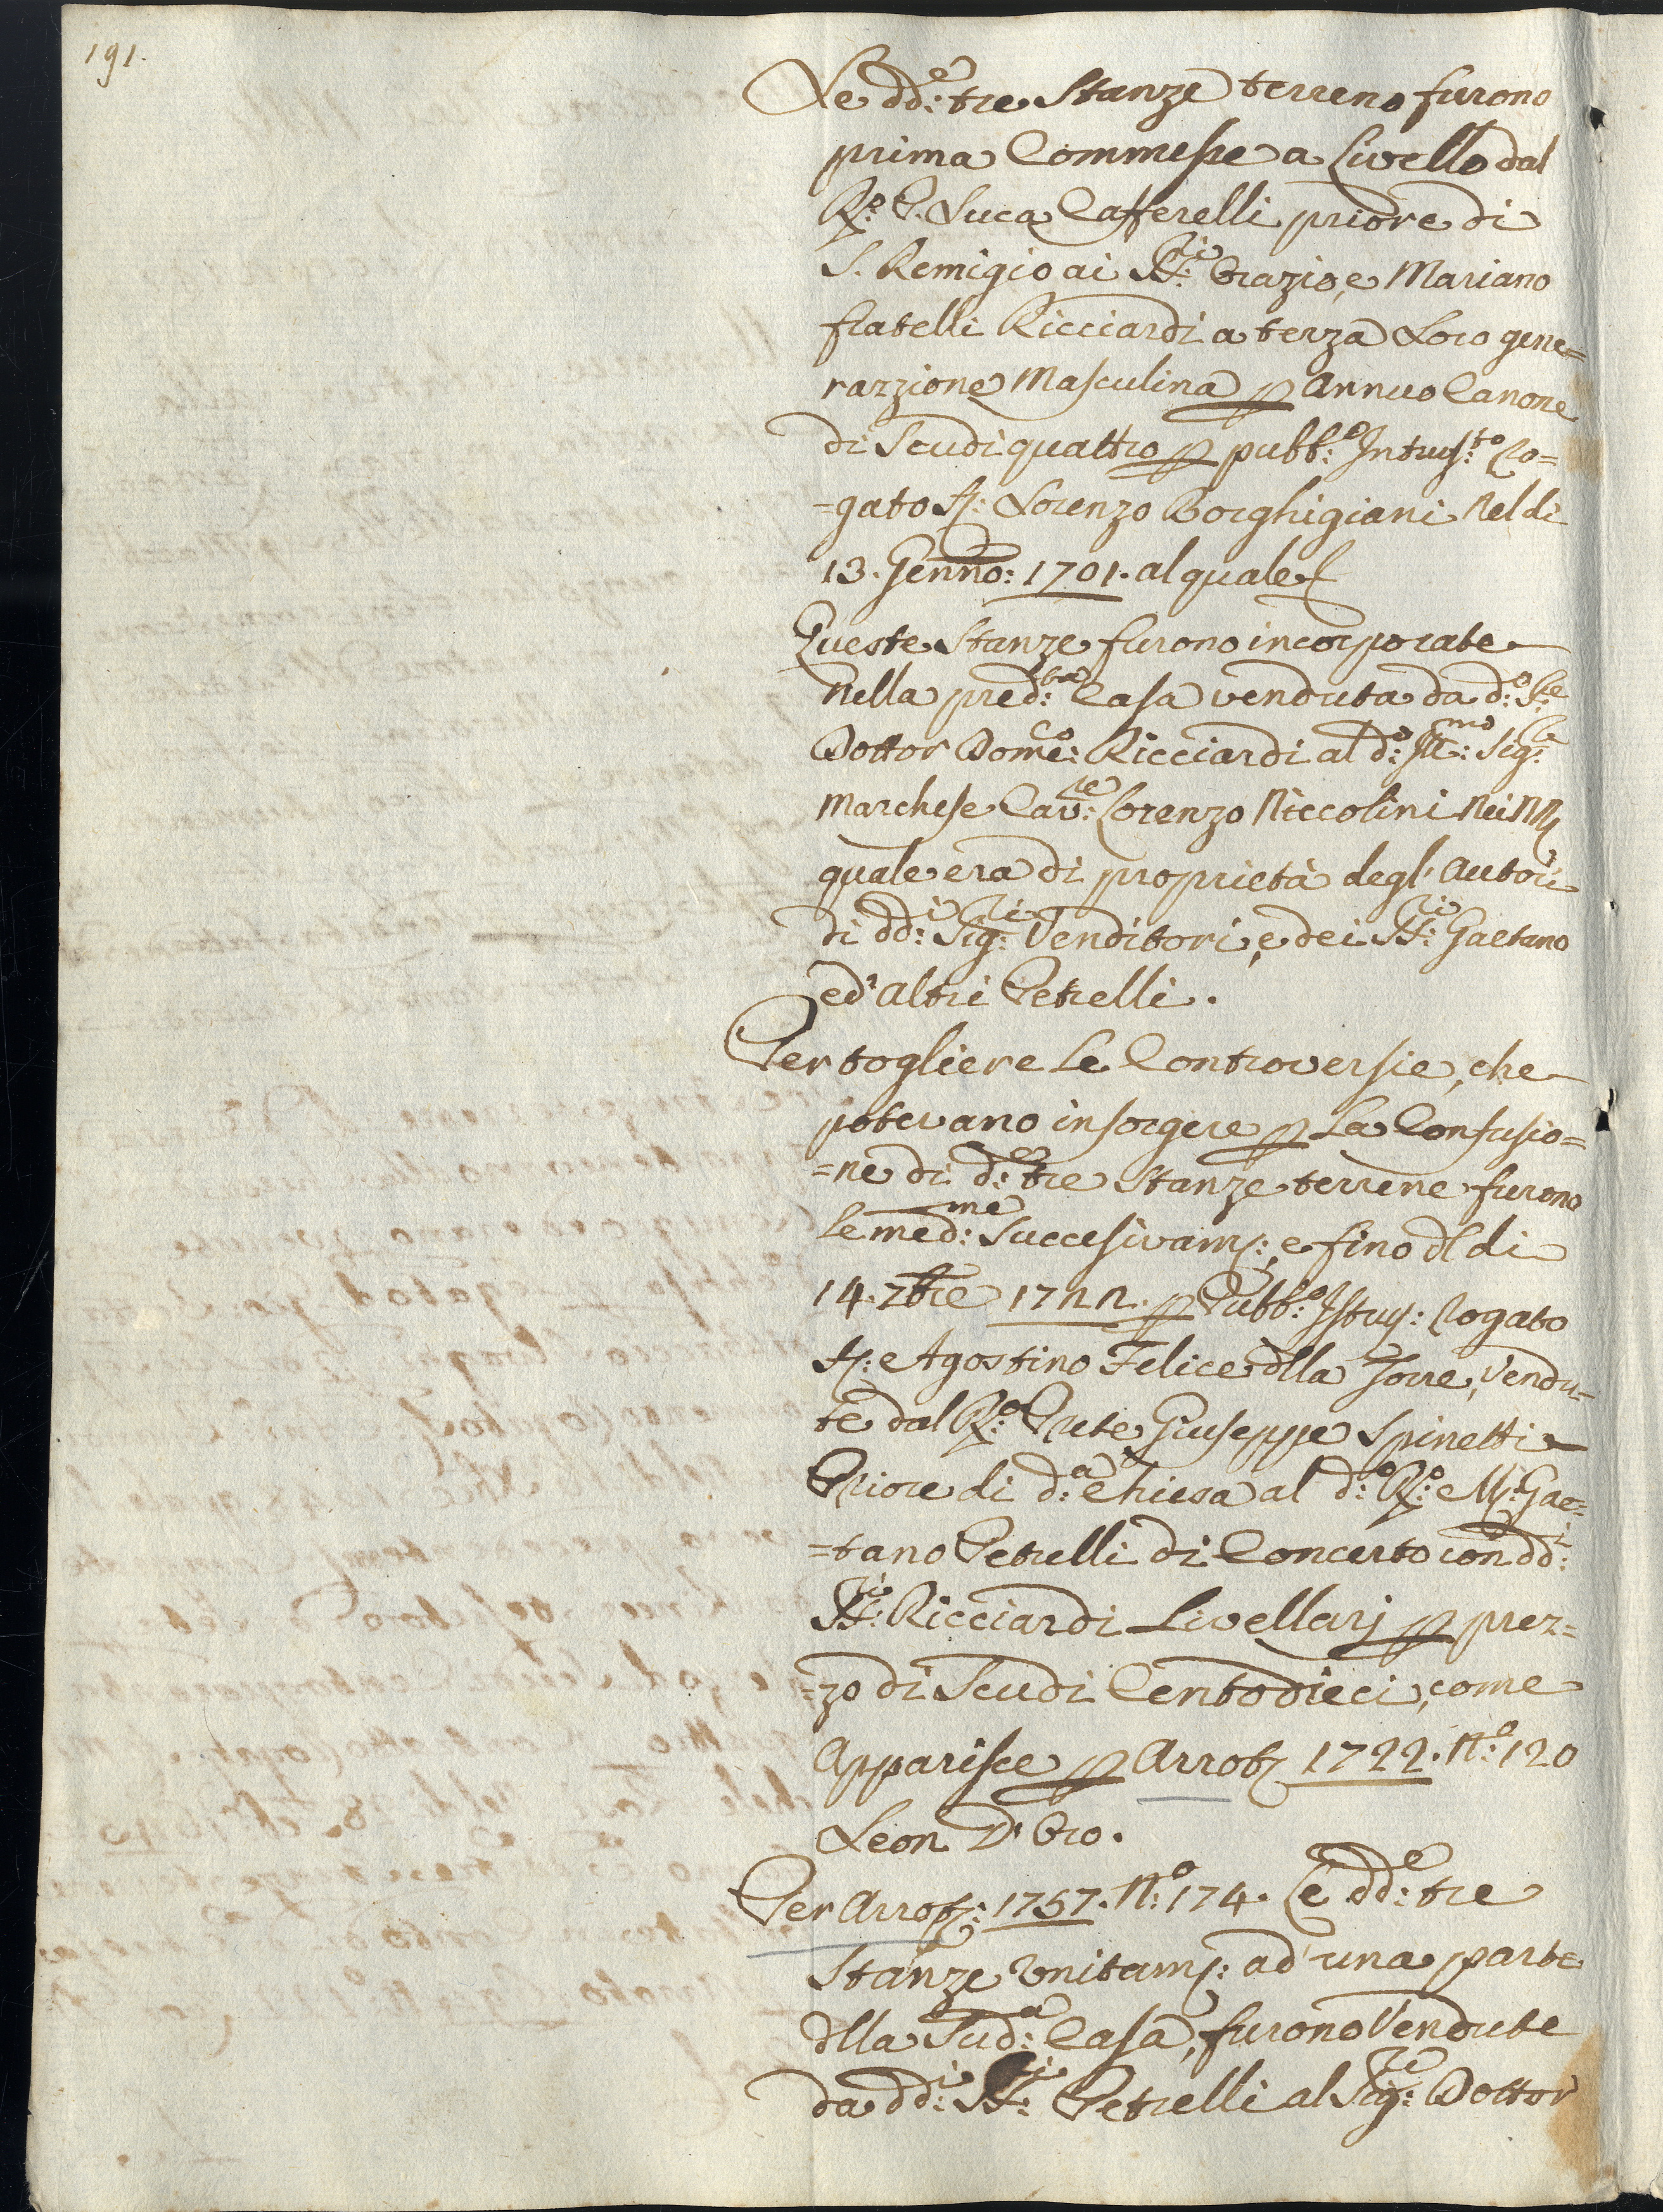 191.
Le dd:e tre Stanze terreno furono
prima Commesse a Livello dal
R:o P. Luca Cafferelli priore di
S. Remigio ai SS:ri Orazio, e Mariano
fratelli Ricciardi a terza Loro gene=
razzione Masculina p Annuo Canone
di Scudi quattro p pubb:o Intrus:to Ro=
=gato S: Lorenzo Borghigiani Nel di
13. Genno: 1701. al quale
Queste Stanze furono incorporate
nella pred:tta Casa venduta da d:o S:re
Dottor Dome:co Ricciardi al d:o Ill:mo Sig:re
Marchese Cav:re Lorenzo Niccolini Nei
quale era di proprietà degl' Autori
di dd:i Sig:ri Venditori, e dei SS:ri Gaetano
ed' altri Petrelli.
Per togliere Le Controversie, che
potevano insorgere p La Confusio=
=ne di d:e tre Stanze terrene furono
le med:me Succesivam:, e fino dl di
14. 7bre 1722. p Pubb:o Istru: Rogato
S: Agostino Felice dlla Torre, Vendu=
te dal R:o Prete Giuseppe Spinetti
Priore di d:a Chiesa al d:o R:o M: Gae=
=tano Petrelli di Concerto con dd:i
SS:ri Ricciardi Livellarj p prez=
=zo di Scudi Centodieci, come
Apparisce p Arrot 1722. N:o 120
Leon D' Oro.
Per Arrot: 1757. N:o 174. Le dd:e tre
Stanze Unitam: ad' una parte
dlla Sud:a Casa, furono Vendute
da dd:i SS:ri Petrelli al Sig:re Dottor